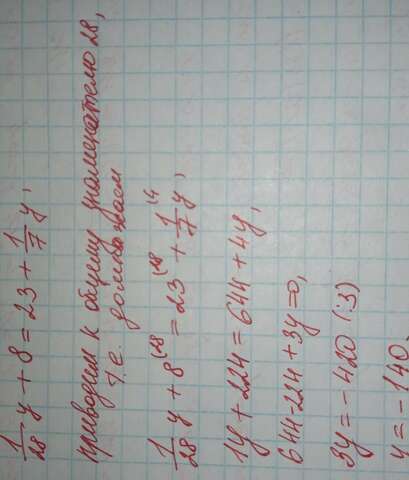 1/28 y + 8 = 23 + 1/7 y,
приводим к общему знаменателю 28,
т.е. домножаем
1/28 y + 8 (28 = 23 (28 + 1/7 (4 y,
1y + 224 = 644 + 4y,
644 - 224 + 3y = 0,
3y = - 420 (:3)
y = - 140.